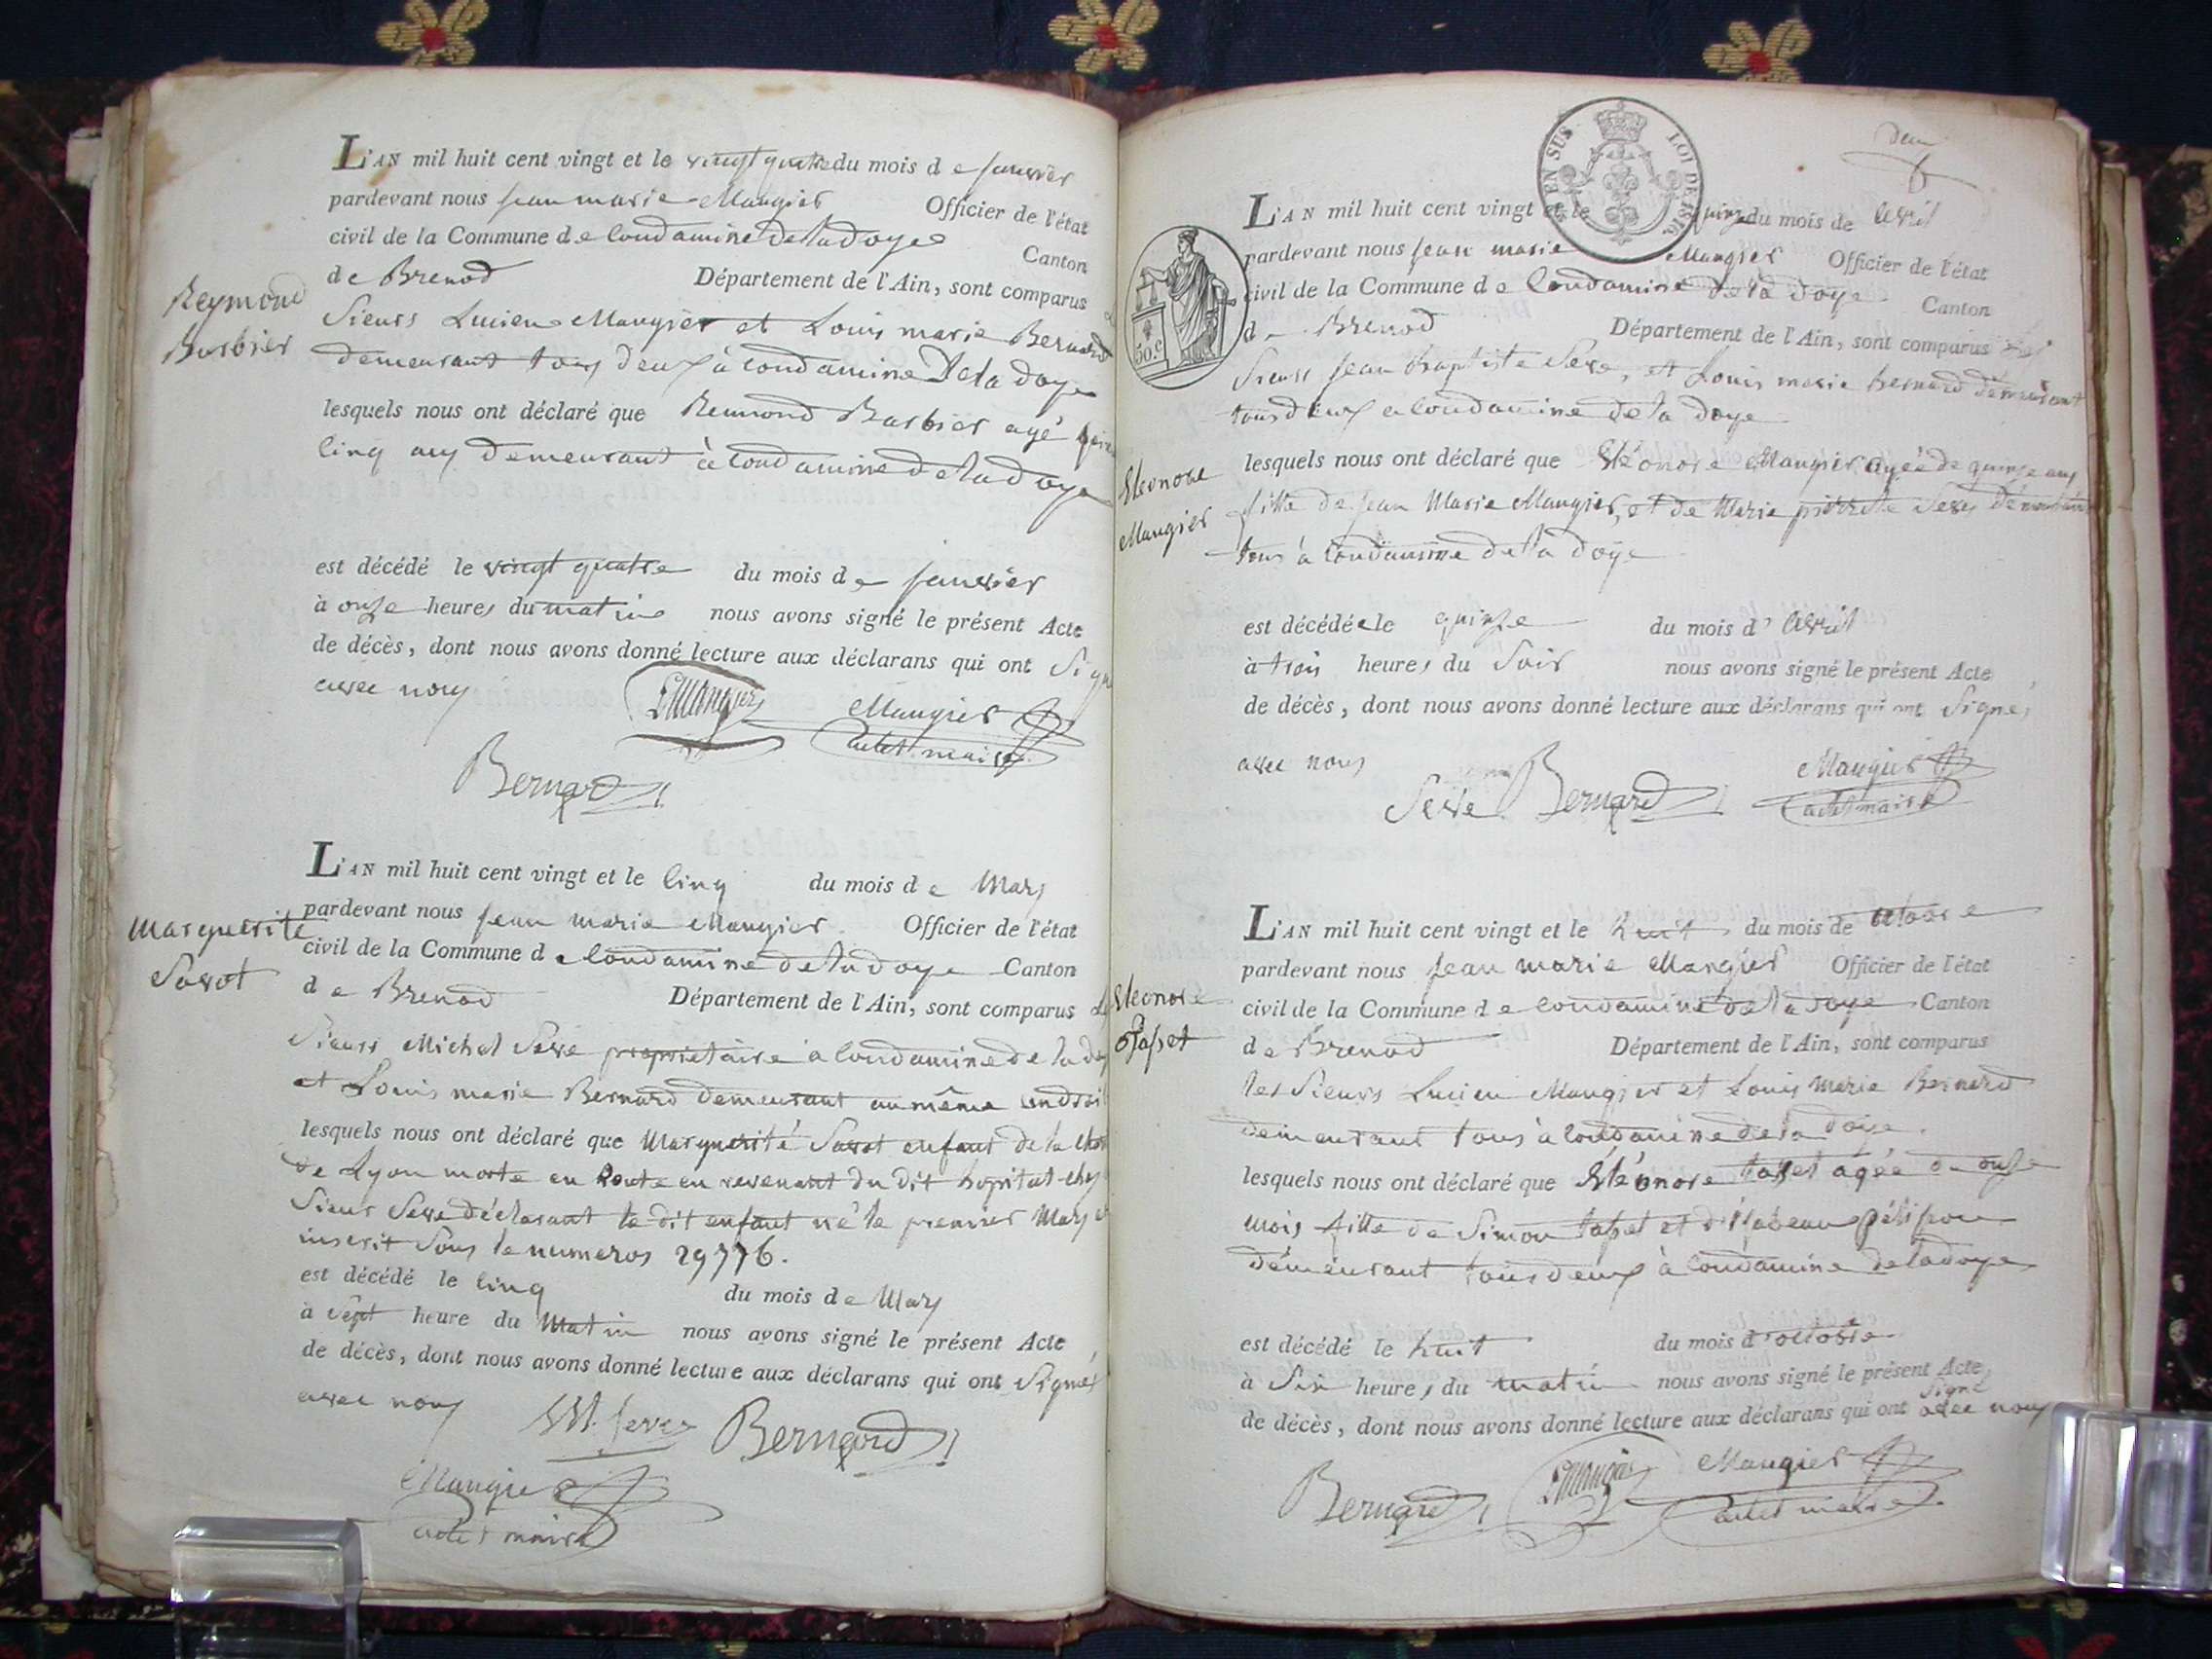 L'AN mil huit cent vingt et le vingt quatre du mois de janvier
pardevant nous jean marie Maugier Officier de l'état
civil de la Commune de Condamine de la doye Canton
de Brenod Département de l'Ain, sont comparus
Sieurs Lucien Maugier et Louis marie Bernard
demeurant tous deux à Condamine de la doye
lesquels nous ont déclaré que Reymond Barbier agé
cinq ans demeurant à Condamine de la doye
est décédé le vingt quatre du mois de janvier
à onze heures du matin nous avons signé le présent Acte
de décès, dont nous avons donné lecture aux déclarans qui ont
avec nous
LMaugier Maugier
adet maire
Bernard
Reymond
Barbier
L'AN mil huit cent vingt et le cinq du mois de Mars
pardevant nous jean marie Maugier Officier de l'état
civil de la Commune de Condamine de la doye Canton
de Brenod Département de l'Ain, sont comparus
Sieurs Michel Seve propriétaire à Condamine de la
et Louis marie Bernard demeurant au même
lesquels nous ont déclaré que Marguerite Savot enfant de la
de Lyon morte en Route en revenant du dit hopital chez
Sieur Seve déclarant le dit enfant né le premier Mars
inscrit sous le numeros 29776.
est décédé le cinq du mois de Mars
à sept heure du Matin nous avons signé le présent Acte
de décès, dont nous avons donné lecture aux déclarans qui ont signés
avec nous
M. Seve Bernard
Maugier
adet maire
Marguerite
Savot
EN SUS. LOI DE 1816.
50.c
deux
L'AN mil huit cent vingt et le quinze du mois de avril
pardevant nous jean marie Maugier Officier de l'état
civil de la Commune de Condamine de la doye Canton
de Brenod Département de l'Ain, sont comparus
Sieurs jean Baptiste Seve, et Louis marie bernard demeurant
tous deux a Condamine de la doye
lesquels nous ont déclaré que Eléonore Maugier agée de quinze ans
fille de jean Marie Maugier, et de Marie pierrette Seve demeurant
tous à Condamine de la doye
est décédée le quinze du mois d' avril
à trois heures du Soir nous avons signé le présent Acte
de décès, dont nous avons donné lecture aux déclarans qui ont Signés
avec nous
Seve Bernard Maugier
adet maire
Eleonore
Maugier
L'AN mil huit cent vingt et le huit du mois de octobre
pardevant nous jean marie Maugier Officier de l'état
civil de la Commune de Condamine de la doye Canton
de Brenod Département de l'Ain, sont comparus
les Sieurs Lucien Maugier et Louis Marie Bernard
demeurant tous à Condamine de la doye.
lesquels nous ont déclaré que Eléonore tasset agée de onze
mois fille de Simon tasset et d'isabeau
demeurant tous deux à Condamine de la doye
est décédé le huit du mois d'octobre
à Six heures du matin nous avons signé le présent Acte
de décès, dont nous avons donné lecture aux déclarans qui ont signé avec nous
Bernard LMaugier Maugier
adet maire
Eleonore